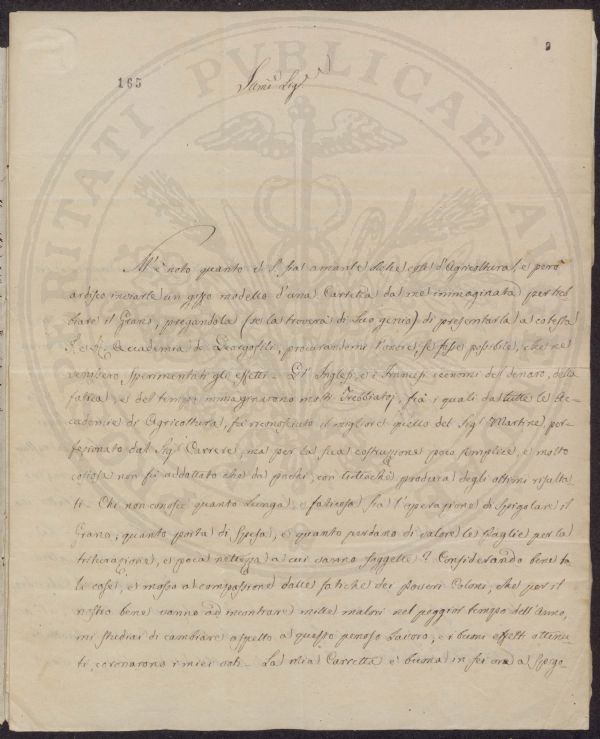 9
165
Sigr
M'è noto quanto ella sia amante delle cose d'Agricoltura, e però
ardisco inviarle un gesso modello d'una Carretta da me immaginata per treb
biare il Grano, pregandola (se la troverà di suo genio) di presentarla a cotesta
Accademia de Georgofili, procurandomi l'onore, se fosse possibile, che ne
venissero sperimentati gli effetti. Gl' Inglesi, e i Francesi economi del denaro, della
fatica, e del tempo immaginarono molti Trebbiatoj, frà i quali da tutte le Ac-
cademie di Agricoltura, fù riconosciuto il migliore quello del Sigr Martine per-
fezionato dal Sigr Carrere, ma per la sua costruzione poco semplice, e molto
costosa non fù addottato che da pochi, con tuttochè produca degli ottimi risulta-
ti. Chi non conosce quanto lunga, e faticosa sia l'operazione di spigolare il
Grano; quanto porta di spesa, e quanto perdano di valore le Paglie per la
triturazione, e poca nettezza a cui vanno soggette? Considerando bene ta
li cose, e mosso a compassione dalle fatiche dei poveri Coloni, che per il
nostro bene vanno ad incontrare mille malori nel peggior tempo dell'Anno,
mi studiai di cambiare aspetto a questo penoso lavoro, e i buoni effetti ottenu-
ti, coronarono i miei voti. La mia Carretta è buona in sei ore a spigo-
VERITATI PUBLICAE